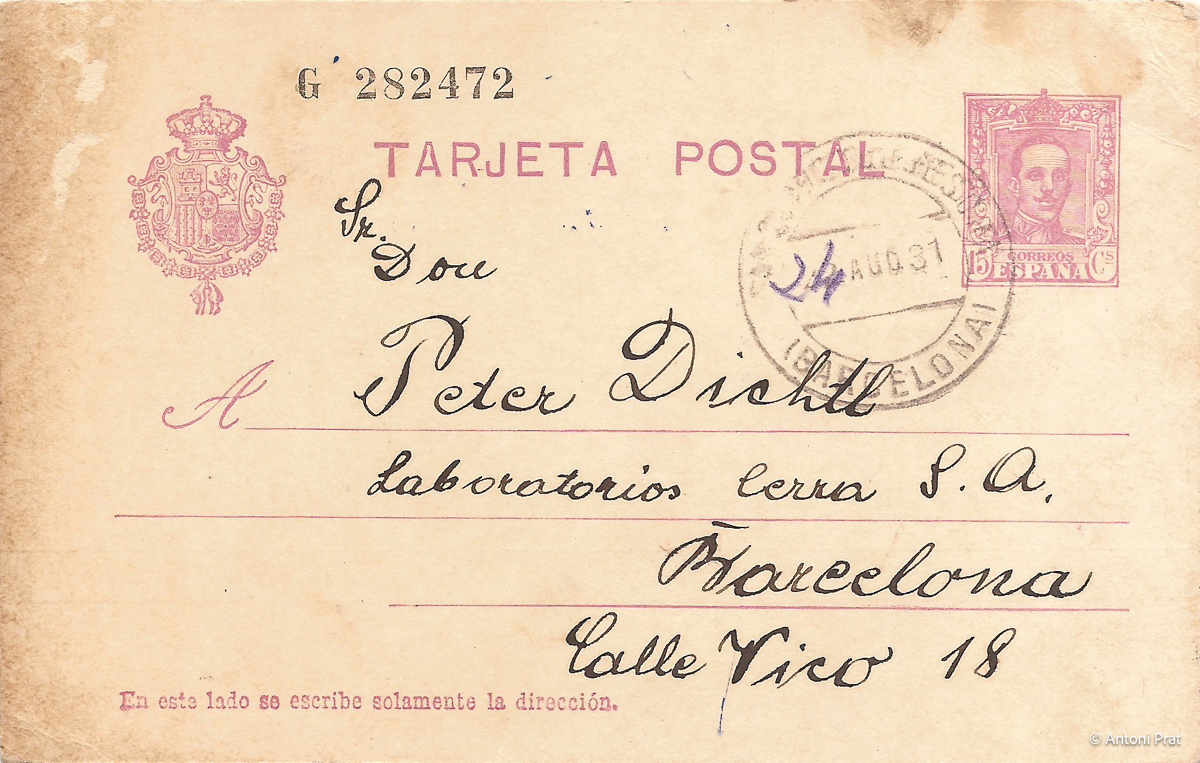 G 282472
TARJETA POSTAL
CORREOS
15 ESPAÑA Cs
24 AGO 31
(BARCELONA)
Sr.
Don
A Peter Dichtl
Laboratorios Cerra S. A.
Barcelona
Calle Vico 18
En este lado se escribe solamente la dirección.
© Antoni Prat